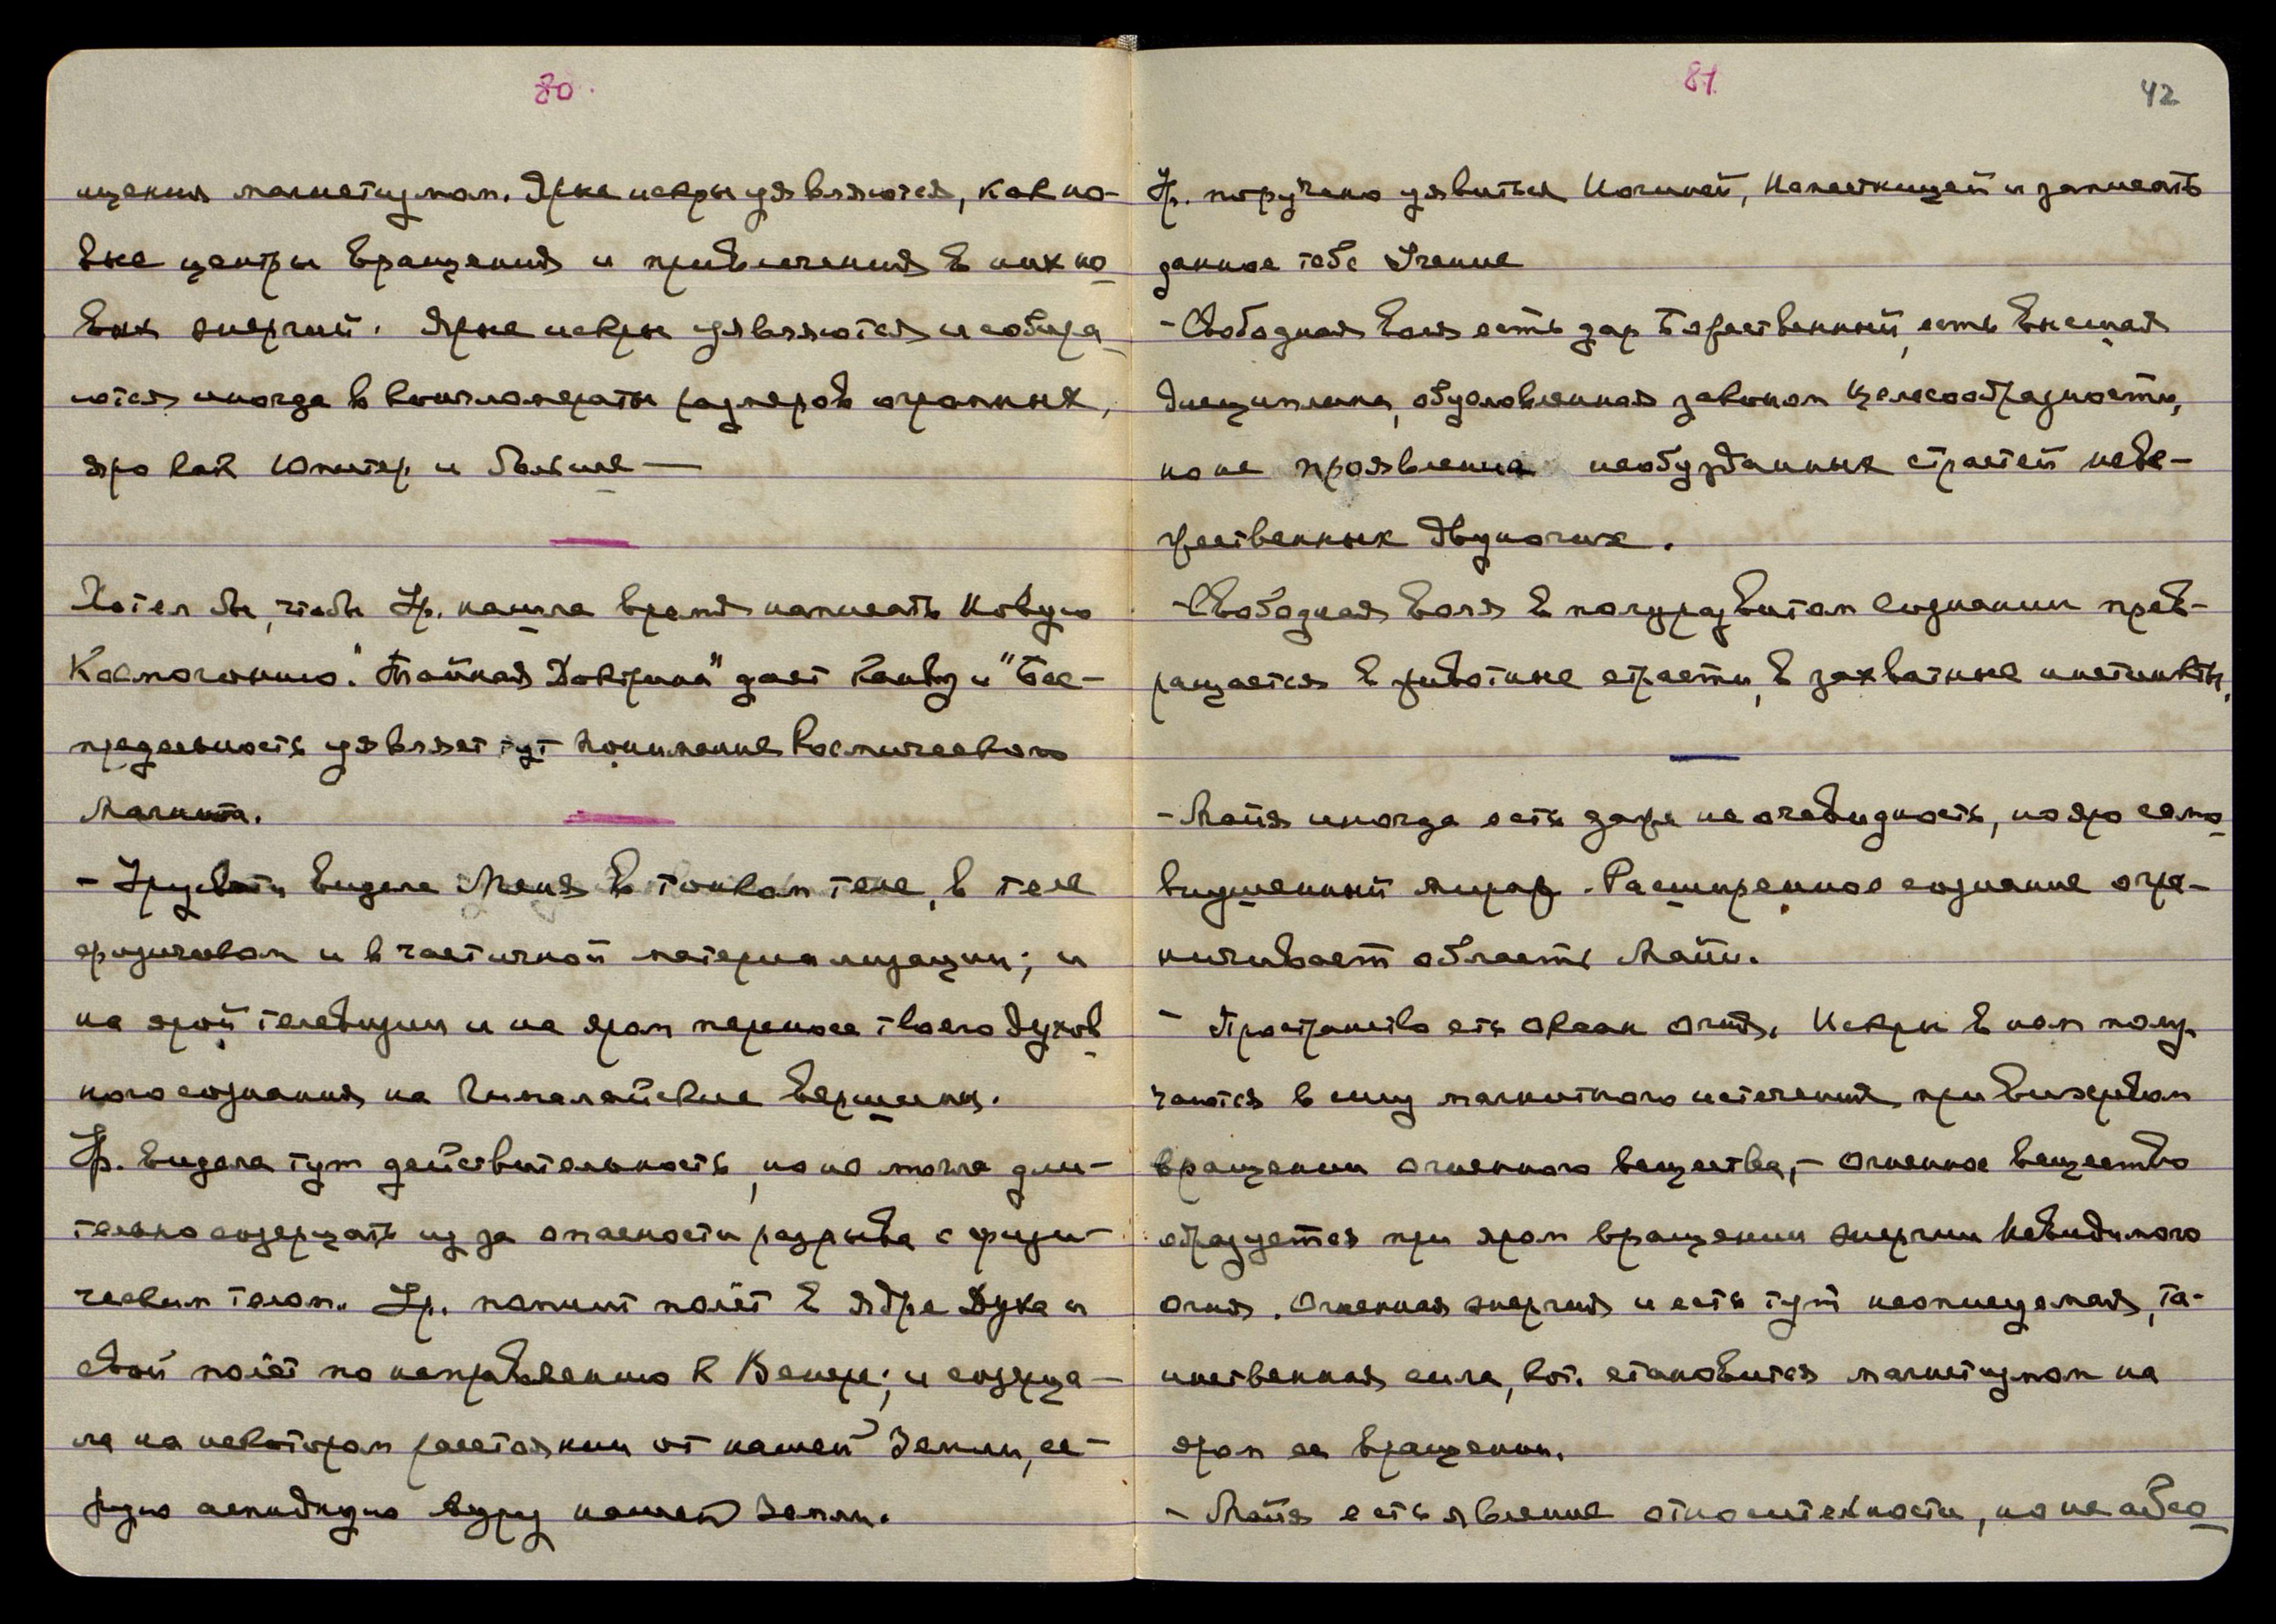 80.
щения магнетизмом. Ярые искры уявляются, как но-
вые центры вращения и привлечения в них но-
вых энергий. Ярые искры уявляются и собира-
ются иногда в конгломераты размеров огромных,
яро как Юпитер и больше —
Хотел бы, чтобы Ур. нашла время написать Новую
Космогонию. "Тайная Доктрина" дает канву и "Бес-
предельность уявляет тут понимание Космического
Магнита.
- Урусвати видела Меня в тонком теле, в теле
физическом и в частичной материализации; и
на ярой телевизии и на яром переносе твоего духов-
ного сознания на Гималайские вершины.
Ур. видела тут действительность, но не могла дли-
тельно созерцать из за опасности разрыва с физи-
ческим телом. Ур. помнит полёт в ядре Духа и
свой полёт по направлению к Венере; и созерца-
ла на некотором расстоянии от нашей Земли, се-
рую аспидную ауру нашей Земли.
81.
42
Ур. поручено уявиться Книгиней, Наместницей и записать
данное тебе Учение
- Свободная воля есть дар Божественный, есть высшая
дисциплина, обусловленная законом целесообразности,
но не проявление необузданных страстей неве-
жественных двуногих.
- Свободная воля в полуразвитом сознании прев-
ращается в животные страсти, в захватные инстинкты.
- Майя иногда есть даже не очевидность, но яро само-
внушенный мираж. Расширенное сознание огра-
ничивает область Майи.
- Пространство есть океан огня. Искры в нем полу-
чаются в силу магнитного истечения при вихревом
вращении огненного вещества, - огненное вещество
образуется при яром вращении энергии Невидимого
огня. Огненная энергия и есть тут неописуемая, та-
инственная сила, кот. становится магнетизмом на
яром ее вращении.
- Майя есть явление относительности, но не абсо-